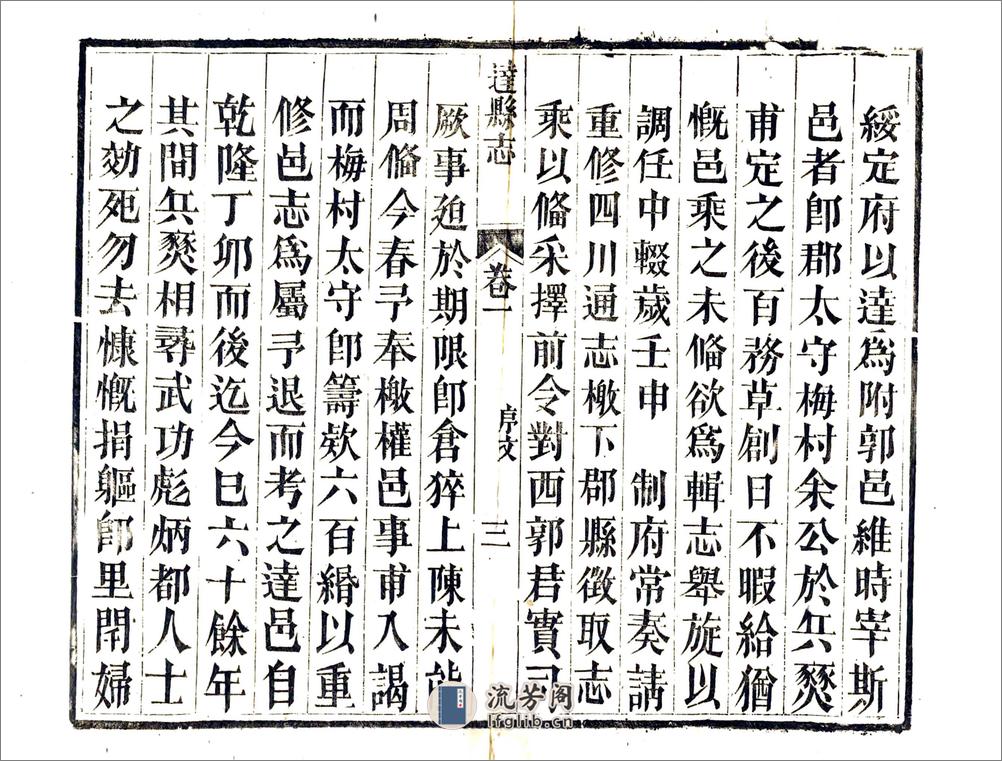 綏定府以達爲附郭邑維時宰斯
邑者卽郡太守梅村余公於兵燹
甫定之後百務草創日不暇給猶
慨邑乘之未俻欲爲輯志舉旋以
調任中輟歲壬申 制府常奏請
重修四川通志檄下郡縣徵取志
乘以俻采擇前令對西郭君實司
達縣志 卷一 序文 三
厥事廹於期限卽倉猝上陳未能
周俻今春予奉檄權邑事甫入謁
而梅村太守卽籌欵六百緡以重
修邑志爲屬予退而考之達邑自
乾隆丁卯而後迄今巳六十餘年
其間兵燹相尋武功彪炳都人士
之効死勿去慷慨捐軀卽里閈婦
流芳阁
lfglib.cn